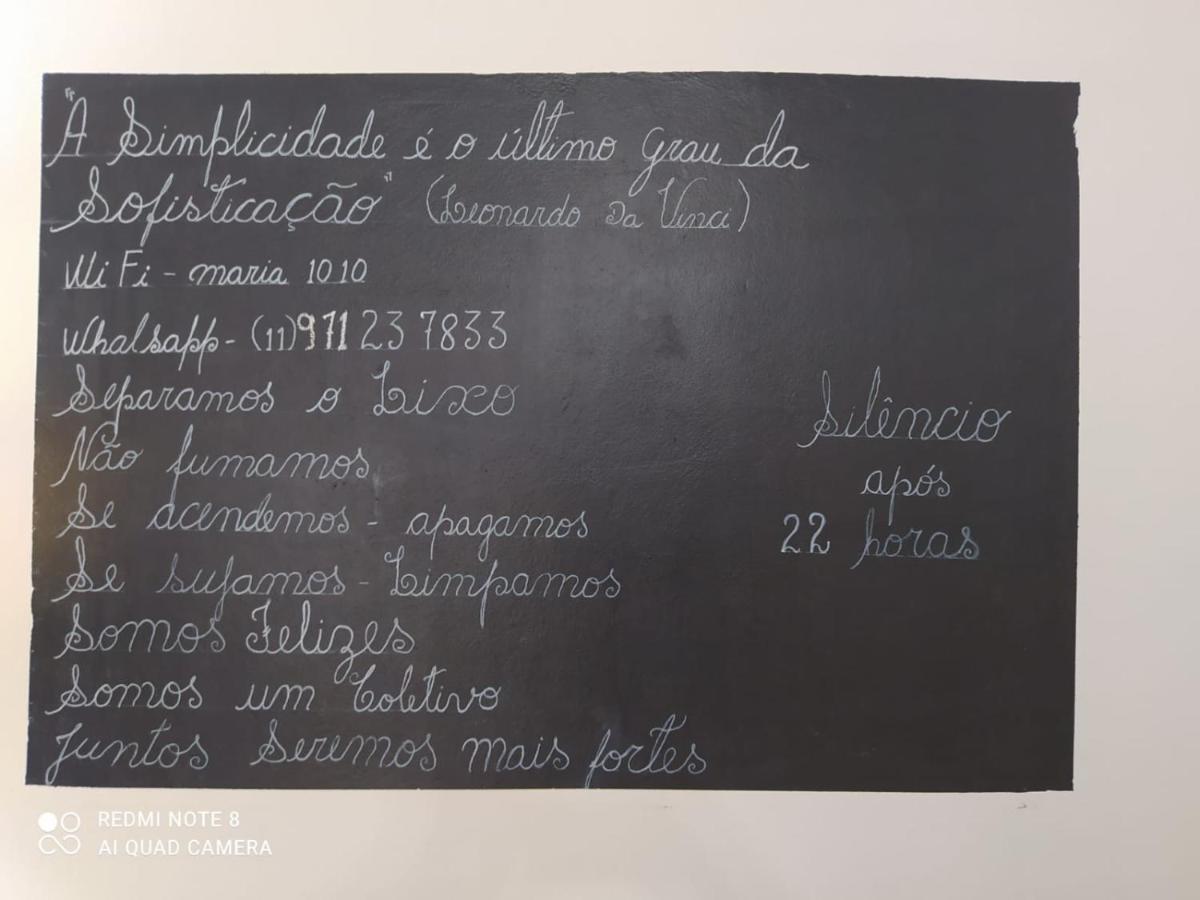 "A Simplicidade é o último grau da
Sofisticação" (Leonardo Da Vinci)
Wi Fi - maria 1010
Whatsapp - (11) 971 23 7833
Separamos o Lixo
Não fumamos
Se acendemos - apagamos
Se sujamos - Limpamos
Somos Felizes
Somos um Coletivo
Juntos Seremos mais fortes
Silêncio
após
22 horas
REDMI NOTE 8
AI QUAD CAMERA